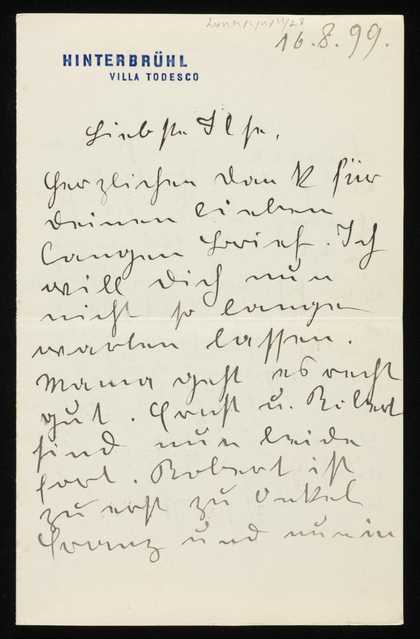 16. 8. 99.
HINTERBRÜHL
VILLA TODESCO
Liebste Ilse,
Herzlichen Dank für
deinen lieben
langen Brief. Ich
will dich nun
nicht so lange
warten lassen.
Mama geht es recht
gut. Ernst u. Robert
sind nun beide
fort. Robert ist
zuerst zu Onkel
Franz und nun in